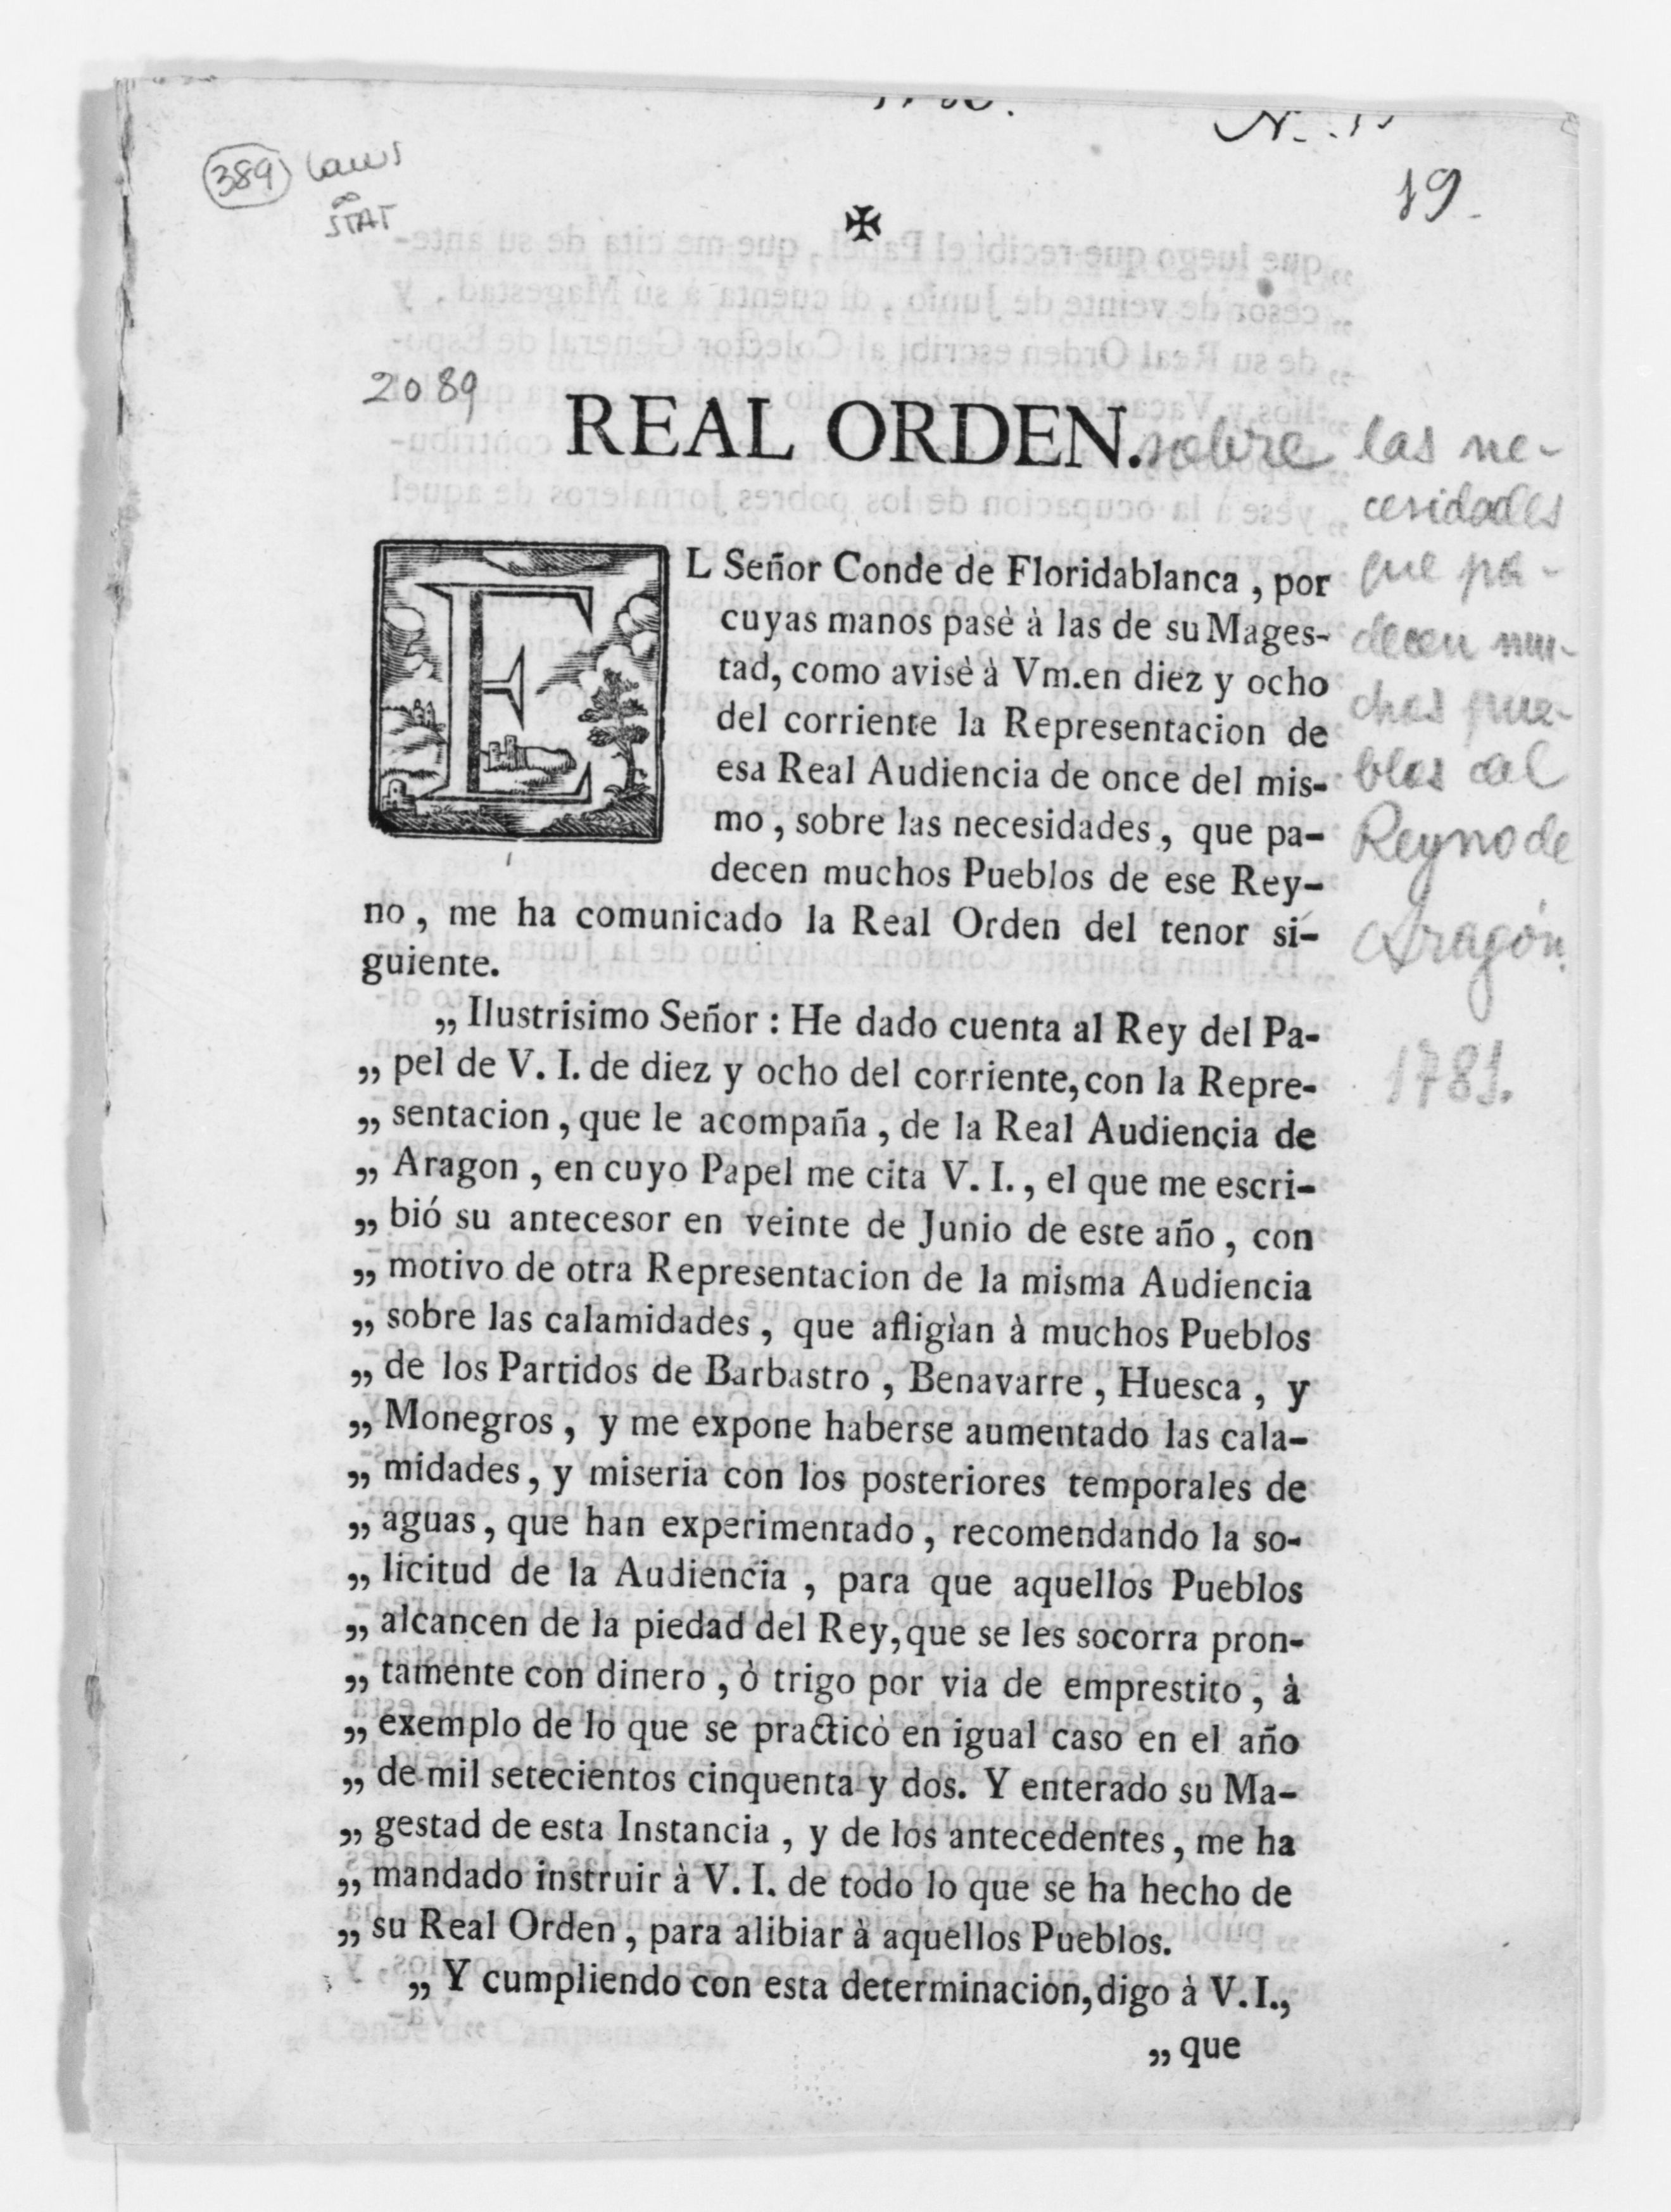 389 laws
STAT
19.
✠
2089
REAL ORDEN. sobre las ne-
cesidades
que pa-
decen mu-
chos pue-
blos del
Reyno de
Aragón.
1781.
EL Señor Conde de Floridablanca, por
cuyas manos pasè à las de su Mages-
tad, como avisè à Vm. en diez y ocho
del corriente la Representacion de
esa Real Audiencia de once del mis-
mo, sobre las necesidades, que pa-
decen muchos Pueblos de ese Rey-
no, me ha comunicado la Real Orden del tenor si-
guiente.
„ Ilustrisimo Señor: He dado cuenta al Rey del Pa-
„ pel de V. I. de diez y ocho del corriente, con la Repre-
„ sentacion, que le acompaña, de la Real Audiencia de
„ Aragon, en cuyo Papel me cita V. I., el que me escri-
„ bió su antecesor en veinte de Junio de este año, con
„ motivo de otra Representacion de la misma Audiencia
„ sobre las calamidades, que afligìan à muchos Pueblos
„ de los Partidos de Barbastro, Benavarre, Huesca, y
„ Monegros, y me expone haberse aumentado las cala-
„ midades, y miseria con los posteriores temporales de
„ aguas, que han experimentado, recomendando la so-
„ licitud de la Audiencia, para que aquellos Pueblos
„ alcancen de la piedad del Rey, que se les socorra pron-
„ tamente con dinero, ò trigo por via de emprestito, à
„ exemplo de lo que se practicò en igual caso en el año
„ de mil setecientos cinquenta y dos. Y enterado su Ma-
„ gestad de esta Instancia, y de los antecedentes, me ha
„ mandado instruir à V. I. de todo lo que se ha hecho de
„ su Real Orden, para alibiar à aquellos Pueblos.
„ Y cumpliendo con esta determinacion, digo à V. I.,
„ que